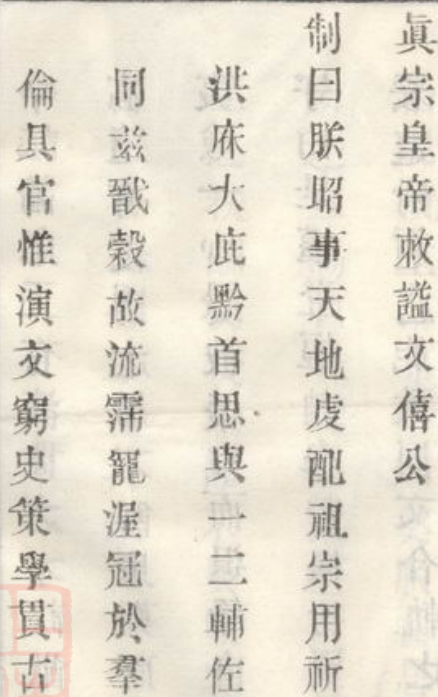 眞宗皇帝敕謚文僖公
制曰朕昭事天地虔配祖宗用祈
洪庥大庇黔首思與一二輔佐
同茲戩穀故流霈寵渥冠於羣
倫具官惟演文窮史策學貫古